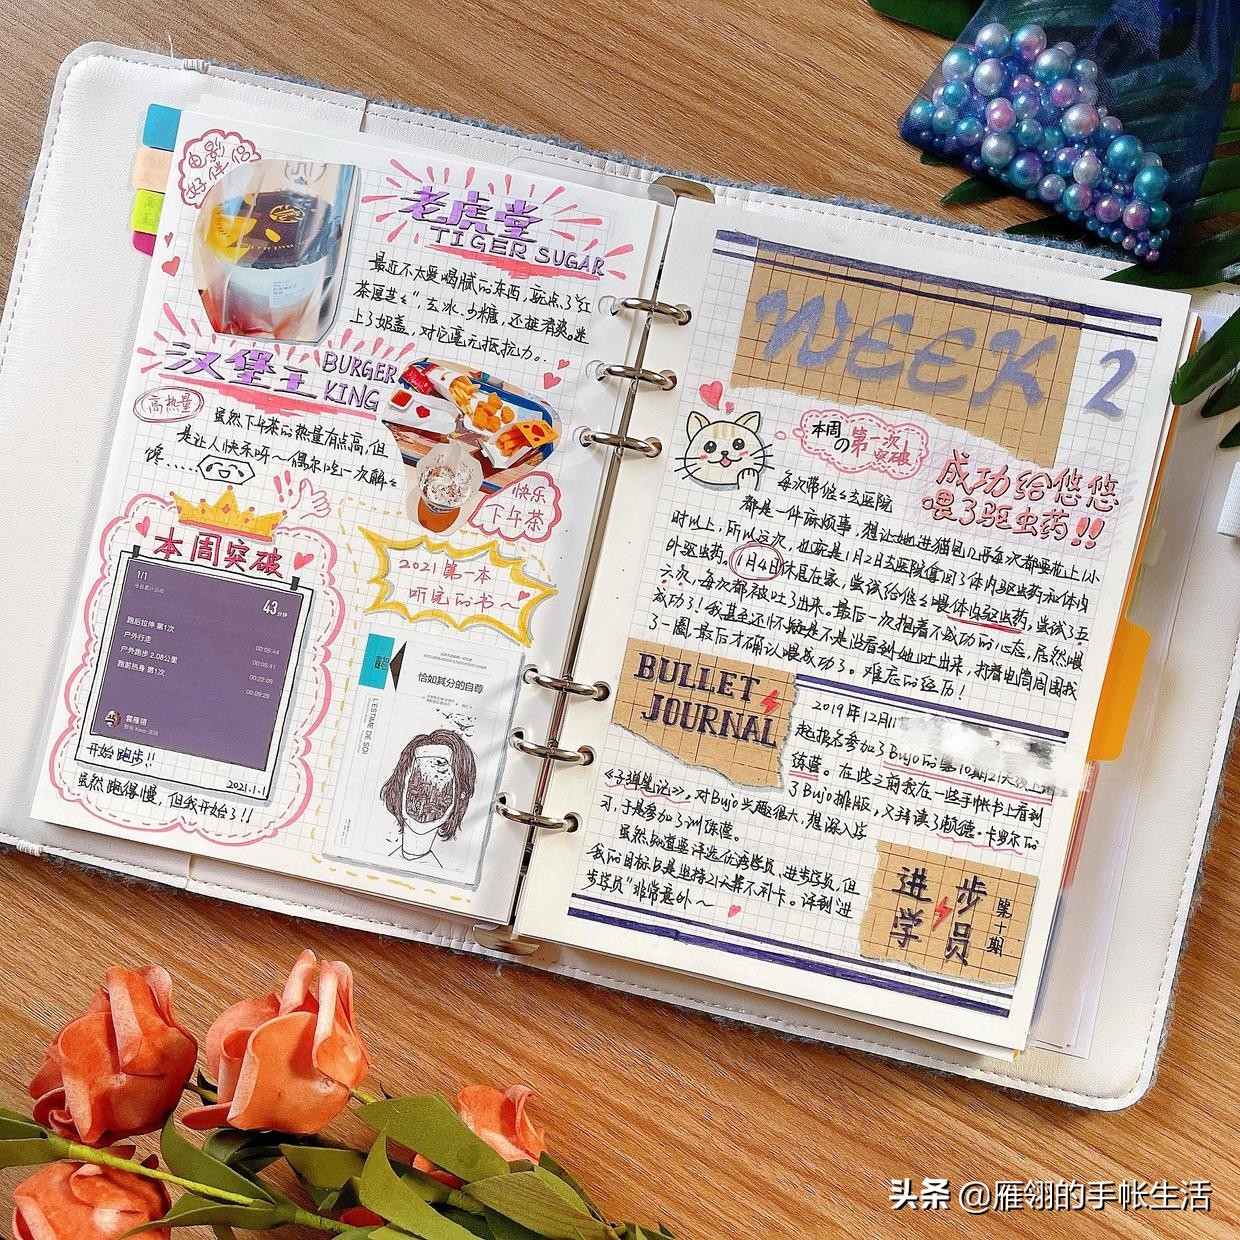 电影
好伴侣
老虎堂
TIGER SUGAR
最近不太爱喝腻的东西，就点了"红
茶厚芝士"去冰、少糖，还挺清爽。迷
上了奶盖，对它毫无抵抗力。
汉堡王 BURGER
KING
高热量
虽然下午茶的热量有点高，但
是让人快乐呀～偶尔吃一次解解
馋……
快乐
下午茶
本周突破
1/1
43分钟
跑后拉伸 第1次
00:05:44
户外行走
00:05:41
户外跑步 2.08公里
00:22:09
跑前热身 第1次
00:09:29
雁翎
开始跑步!!
2021.1.1
虽然跑得慢，但我开始了!!
2021第一本
听完的书～
恰如其分的自尊
L'ESTIME DE SOI
WEEK 2
本周的第一次
突破
成功给悠悠
喂了驱虫药!!
每次带悠悠去医院
都是一件麻烦事，想让她进猫包几乎每次都要花上1小
时以上，所以这次，也就是1月2日去医院值回了体内驱虫药和体内
外驱虫药。1月4日休息在家，尝试给悠悠喂体内驱虫药，尝试了五
六次，每次都被吐了出来。最后一次抱着不成功的心态，居然喂
成功了！我甚至还怀疑是不是没看到她吐出来，打着电筒周围找
了一圈，最后才确认喂成功了。难忘的经历！
BULLET
JOURNAL
2019年12月11
赵报名参加了Bujo的第10期21天线上
练营。在些之前我在一些手帐书上看到
了Bujo排版，又拜读了赖德·卡罗尔的
《子弹笔记》，对Bujo兴趣很大，想深入学
习，于是参加了训练营。
虽然知道要评选优秀学员、进步学员，但
我的目标只是坚持21天算不补卡。评到"进
步学员"非常意外～
进步
学员
第十期
头条 @雁翎的手帐生活